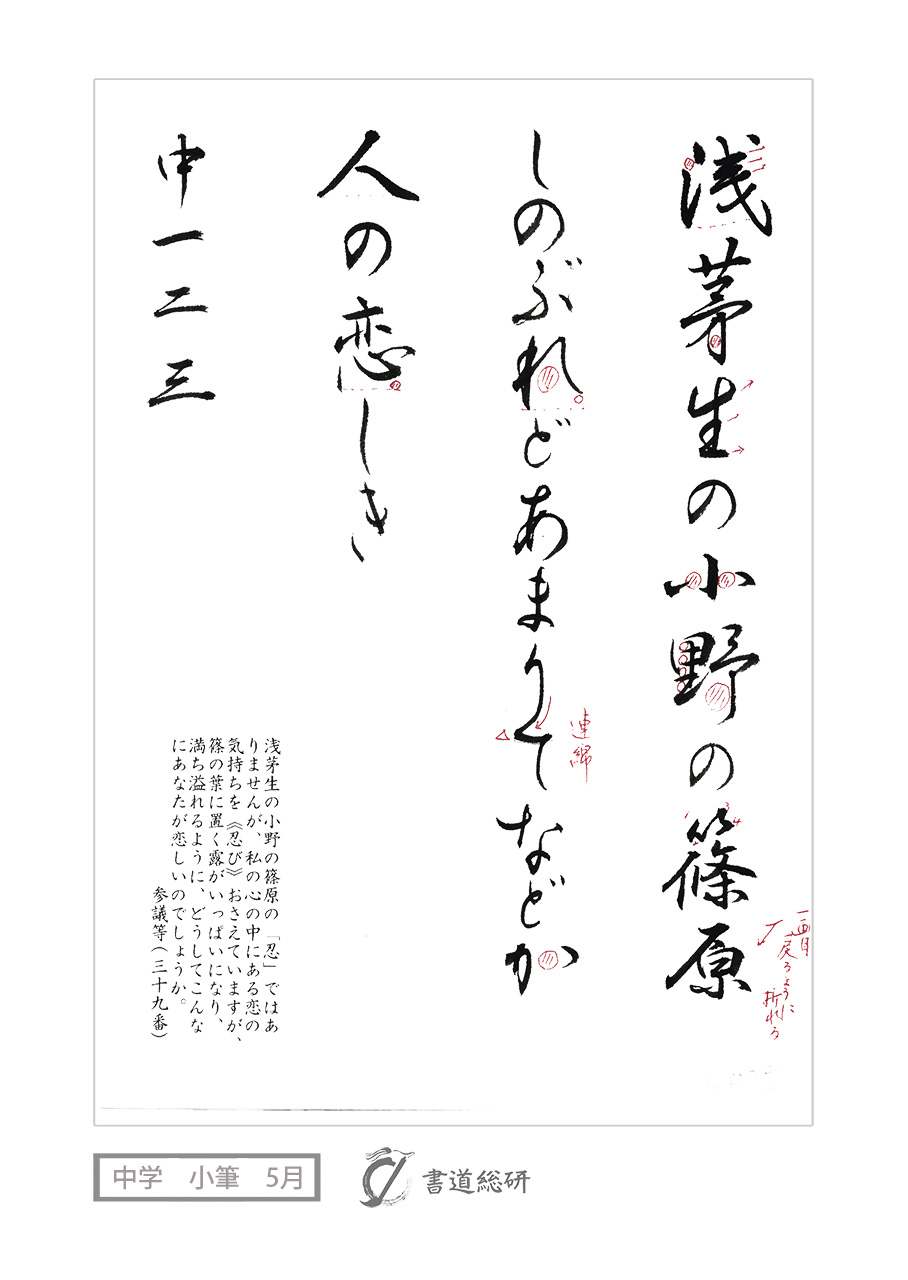 浅茅生の小野の篠原
しのぶれどあまりてなどか
人の恋しき
中一二三
連綿
一画目
戻るように
折れる
浅茅生の小野の篠原の「忍」ではあ
りませんが、私の心の中にある恋の
気持ちを《忍び》おさえていますが、
篠の葉に置く露がいっぱいになり、
満ち溢れるように、どうしてこんな
にあなたが恋しいのでしょうか。
参議等(三十九番)
中学 小筆 5月
書道総研